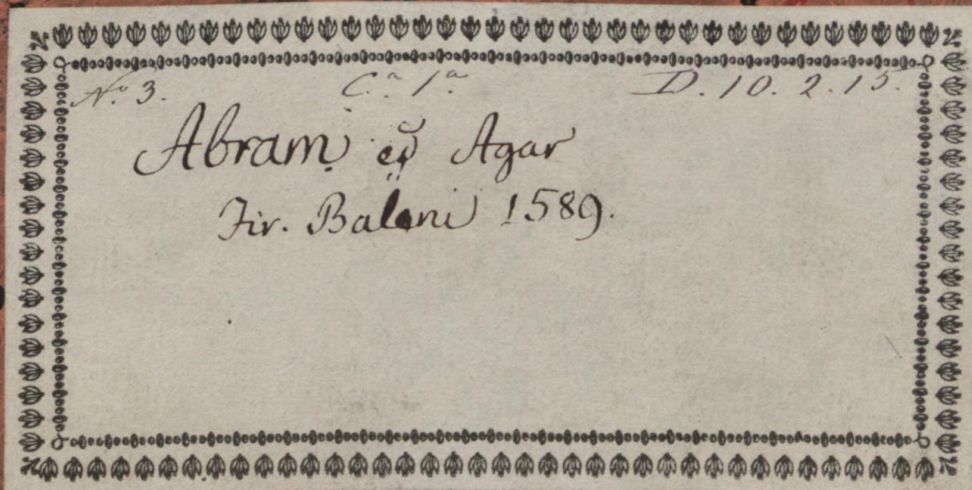 N.º 3. C.ª 1.ª D. 10. 2. 15.
Abram, ed Agar
Fir. Baloni 1589.